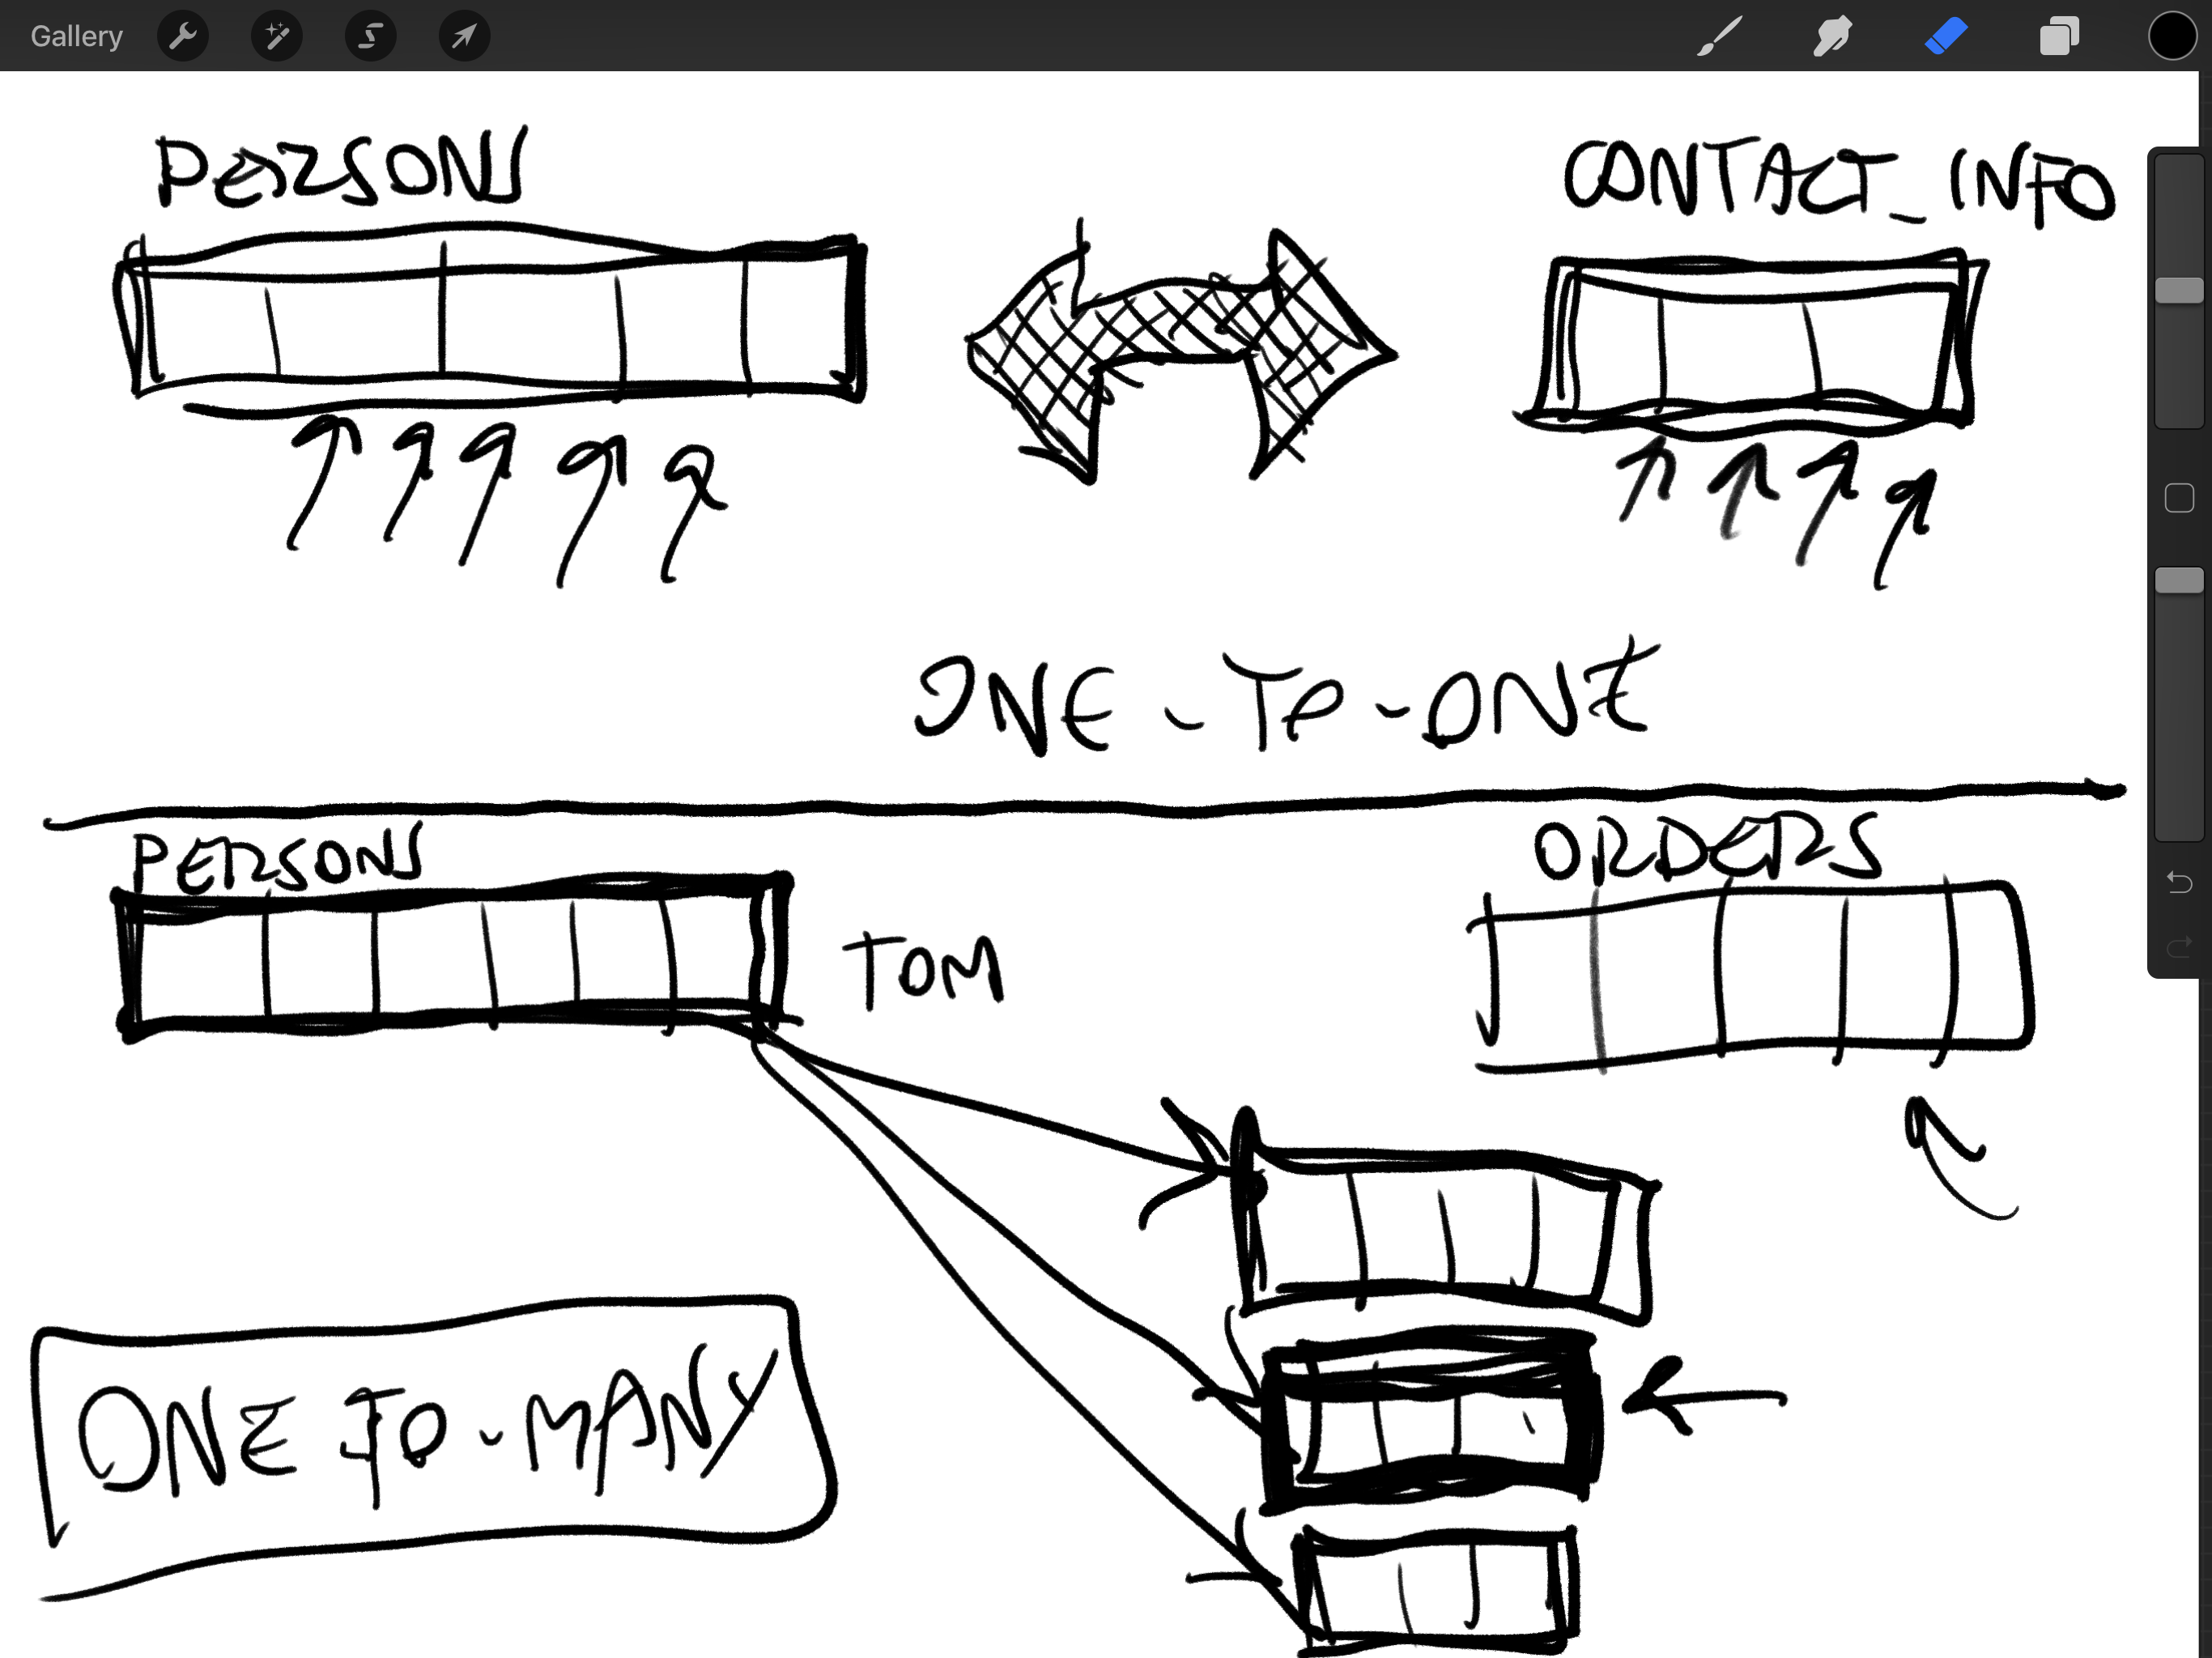 Gallery
PERSONS
CONTACT_INFO
ONE-TO-ONE
PERSONS
ORDERS
TOM
ONE TO-MANY